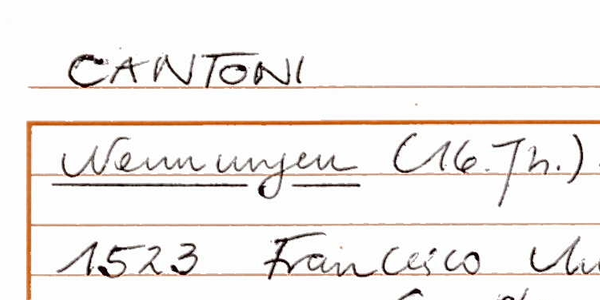 CANTONI
Nennungen (16. Jh.)
1523 Francesco